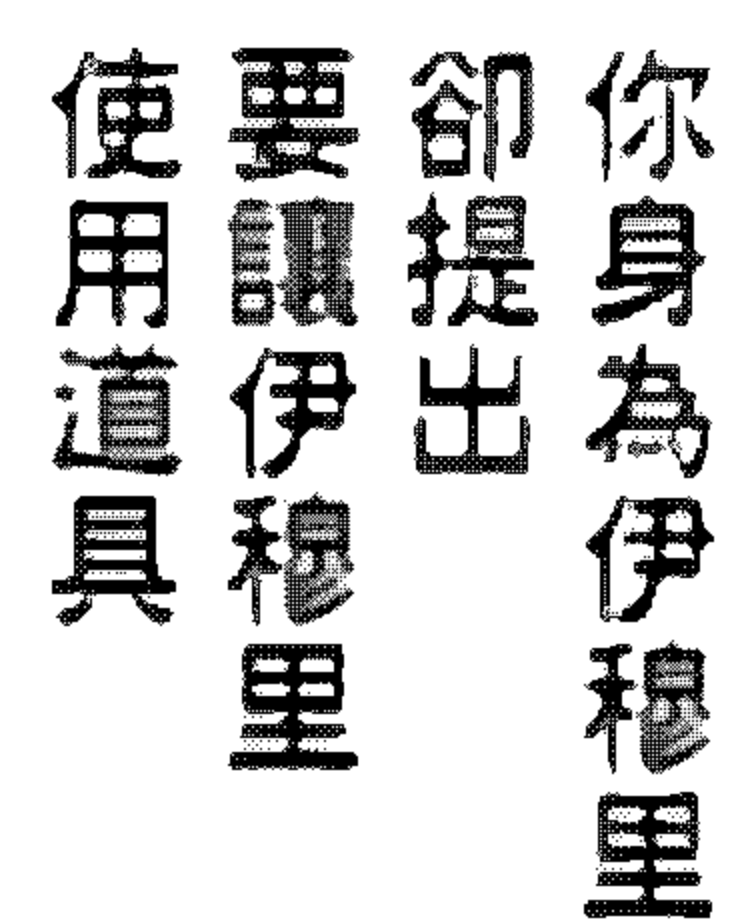 你身為伊穆里
卻提出
要讓伊穆里
使用道具